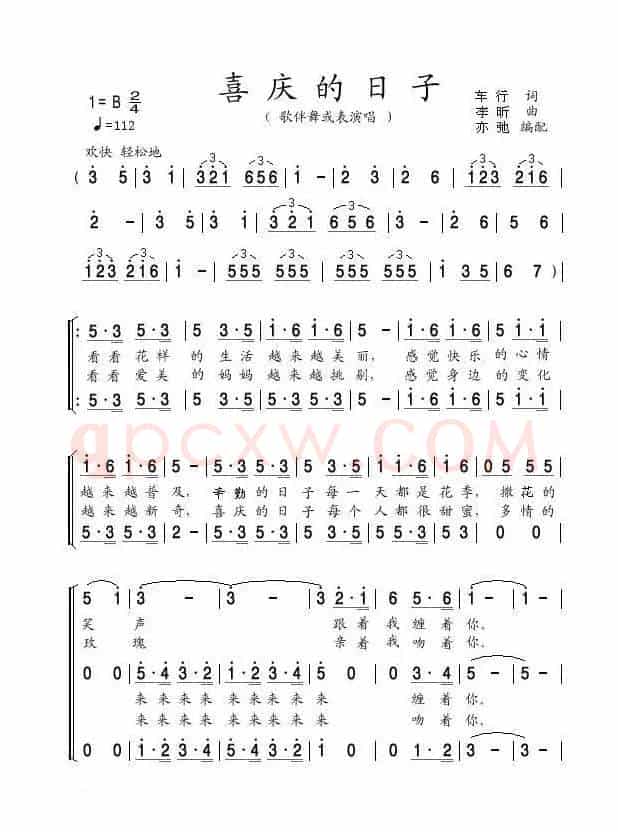 喜庆的日子
( 歌伴舞或表演唱 )
1=B 2/4
♩=112
车行 词
李昕 曲
亦弛 编配
欢快 轻松地
( 3 5 | 3 1 | 321 656 | 1 - | 2 3 | 2 6 | 123 216 |
2 - | 3 5 | 3 1 | 3 2 1 6 5 6 | 1 - | 2 3 | 2 6 | 5 5 |
123 216 | 1 - | 555 555 | 555 555 | 1 3 5 | 6 7 ) |
5·3 5·3 | 5 3 5 | 1·6 1·6 | 5 - | 5·3 5·3 | 5 1·1 |
看看花样的生活越来越美丽，感觉快乐的心情
看看爱美的妈妈越来越挑剔，感觉身边的变化
5·3 5·3 | 5 3 5 | 1·6 1·6 | 5 - | 5·3 5·3 | 5 1·1 |
apcxw.COM
1·6 1·6 | 5 - | 5·3 5·3 | 5 3 5 | 1·6 1·6 | 05 55 |
越来越普及，辛勤的日子每一天都是花季，撒花的
越来越新奇，喜庆的日子每个人都很甜蜜，多情的
5·3 5·3 | 2 - | 5·3 5·3 | 5 3 5 | 5·3 5·3 | 0 0 |
5 1 | 3 - | 3 - | 3 2·1 | 6 5·6 | 1 - | 1 - |
笑声 跟着我缠着你，
玫瑰 亲着我吻着你，
0 0 | 5·4 3·2 | 5·4 3·2 | 5·4 3·2 | 0 3·4 | 5 - | 5 - |
来来来来来来来来 缠着你，
来来来来来来来来 吻着你，
0 0 | 1·2 3·4 | 5·4 3·2 | 1·2 3·4 | 0 3·2 | 1 - | 1 - |